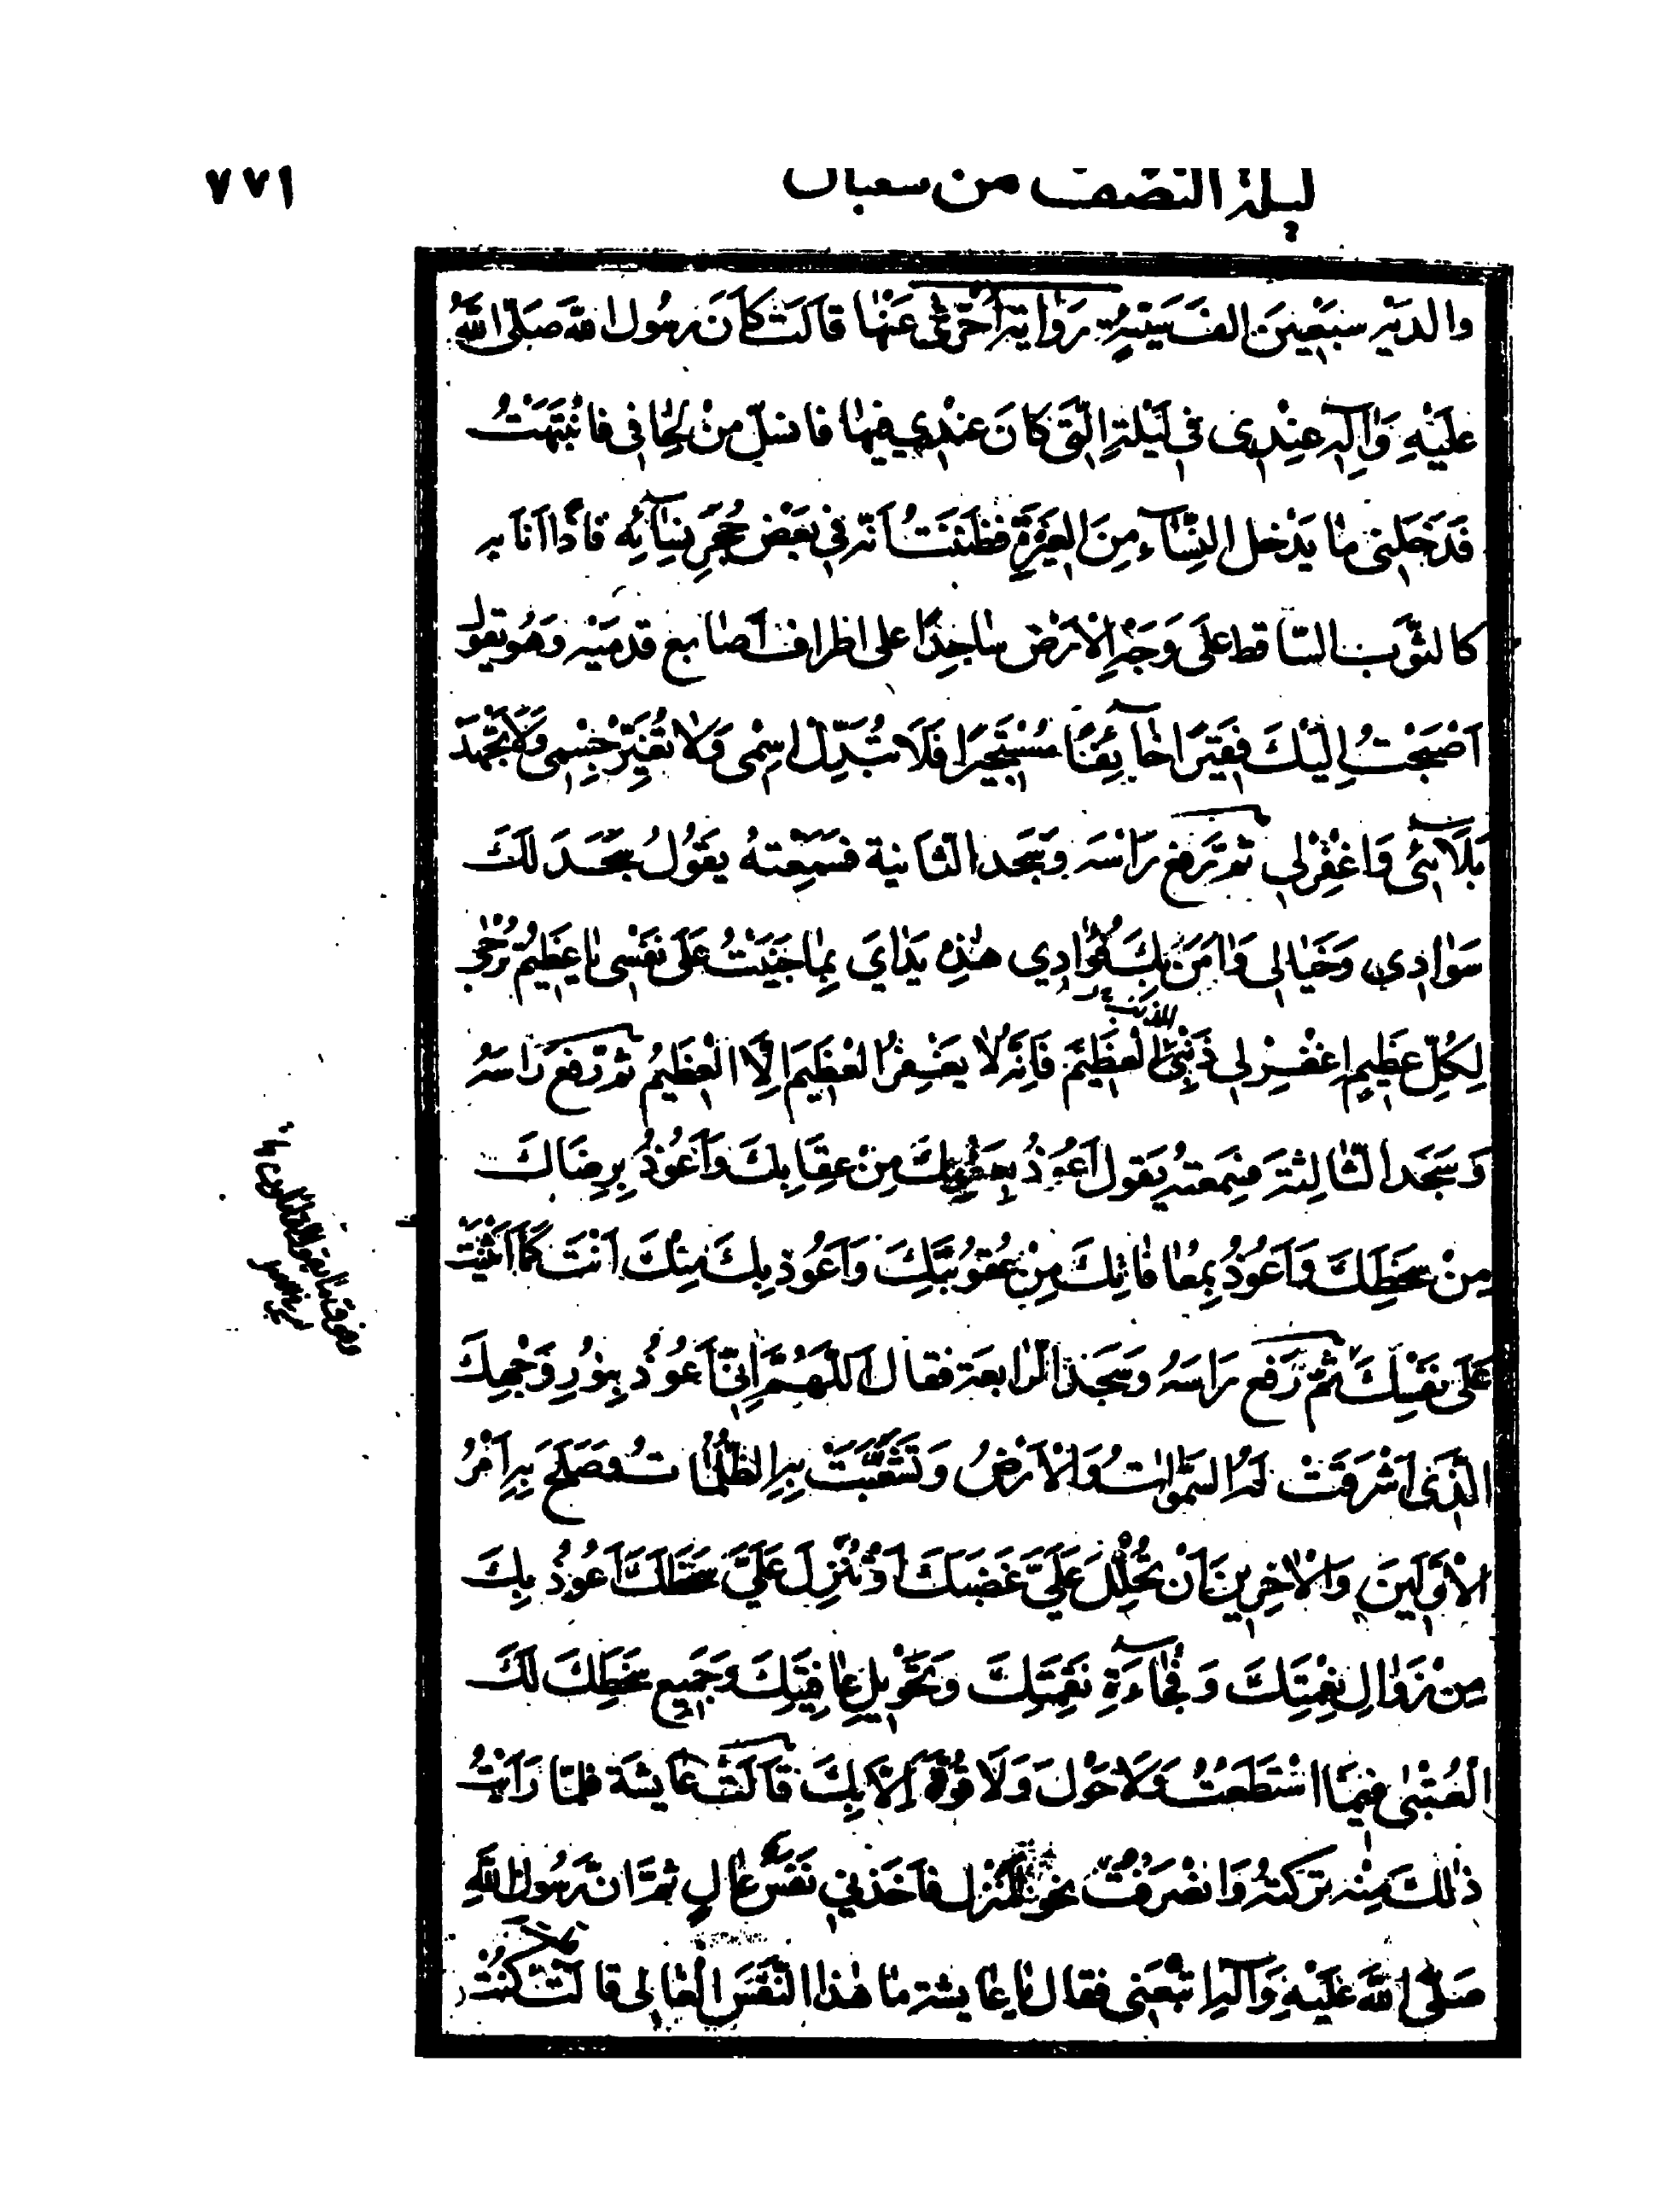 ٧٧١
ليلة النصف من شعبان
والديه سبعين الف سيئة رواية اخرى عنها قالت كان رسول الله صلى الله
عَلَيْهِ وَآلِهِ عِنْدِي في لَيْلَةِ الَّتي كانَ عِنْدِي فيها فانسلّ مِنْ لِحافي فانْتَبَهْتُ
فَدَخَلَني ما يَدْخل النِّسآءَ مِنَ الْغَيْرَةِ فظَنَنْتُ اَنّه في بَعْضِ حُجَرِ نِسآئِهِ فَاِذا اَنَا بِهِ
كالثَّوْبِ السّاقط عَلى وَجْهِ الْأَرْضِ ساجِدًا على اطراف اَصابع قدمَيْه وَهُوَ يَقُولُ
اَصْبَحْتُ اِلَيْكَ فَقيرًا خآئِفًا مُسْتَجيرًا فَلا تُبَدِّلْ اِسْمي وَلا تُغَيِّرْ جِسْمي وَلا تُجْهِدْ
بَلآئي وَاغْفِرْلي ثم رَفع رَاْسَه وسَجَد الثّانية فسَمِعْته يَقُولُ سَجَدَ لَكَ
سَوادي وَخَيالي وَامَنَ بِكَ فُؤادي هذِهِ يَدايَ بِما جَنَيْتُ عَلى نَفْسي يا عَظيمُ تُرْجى
لِكُلِّ عَظيمٍ اِغْفِرْ لي ذَنْبِيَ الْعَظيمَ فَاِنَّهُ لا يَغْفِرُ الْعَظيمَ اِلَّا الْعَظيمُ ثم رَفع رَاْسَهُ
الذنب
وَسَجَد الثّالِثَةَ فسَمِعته يَقول اَعُوذُ بِعَفْوِكَ مِنْ عِقابِكَ وَاَعُوذُ بِرِضَاكَ
مِنْ سَخَطِكَ وَاَعُوذُ بِمُعافاتِكَ مِنْ عُقُوبَتِكَ وَاَعُوذ بِكَ مِنْكَ اَنْتَ كَما اَثْنَيْتَ
عَلى نَفْسِكَ ثُمَّ رَفَع رَاسَهُ وَسَجَد الرّابعة فقالَ اَللّهُمَّ اِنّي اَعُوذُ بِنُورِ وَجْهِكَ
الَّذي اَشْرَقَتْ لَهُ السَّمواتُ وَالْاَرْضُ وَتَقَشَّعَتْ بِهِ الظُّلُماتُ وَصَلَحَ بِهِ اَمْرُ
الْاَوَّلينَ وَالْاخِرينَ اَنْ تُحْلِلَ عَلَيَّ غَضَبَكَ اَوْ تُنْزِلَ عَلَيَّ سَخَطَكَ اَعُوذُ بِكَ
مِنْ زَوالِ نِعْمَتِكَ وَفُجآءَةِ نَقِمَتِكَ وَتَحْويلِ عافِيَتِكَ وَجَميعِ سَخَطِكَ لَكَ
الْعُتْبى فيمَا اسْتَطَعْتُ وَلا حَوْلَ وَلا قُوَّةَ اِلّا بِكَ قالَتْ عايشَة فلمّا رَاَيْتُ
ذلكَ مِنْه تَرَكتهُ وَانْصَرَفْتُ نحو المنزل فاَخَذني نَفَس عالٍ ثمّ اِنّ رَسُولَ اللّهِ
صَلَّى اللّهُ عَلَيْهِ وَآلِهِ اتَّبَعَني فقال يا عايشة ما هذا النَّفَسُ الْعالي قالَتْ كُنْتُ